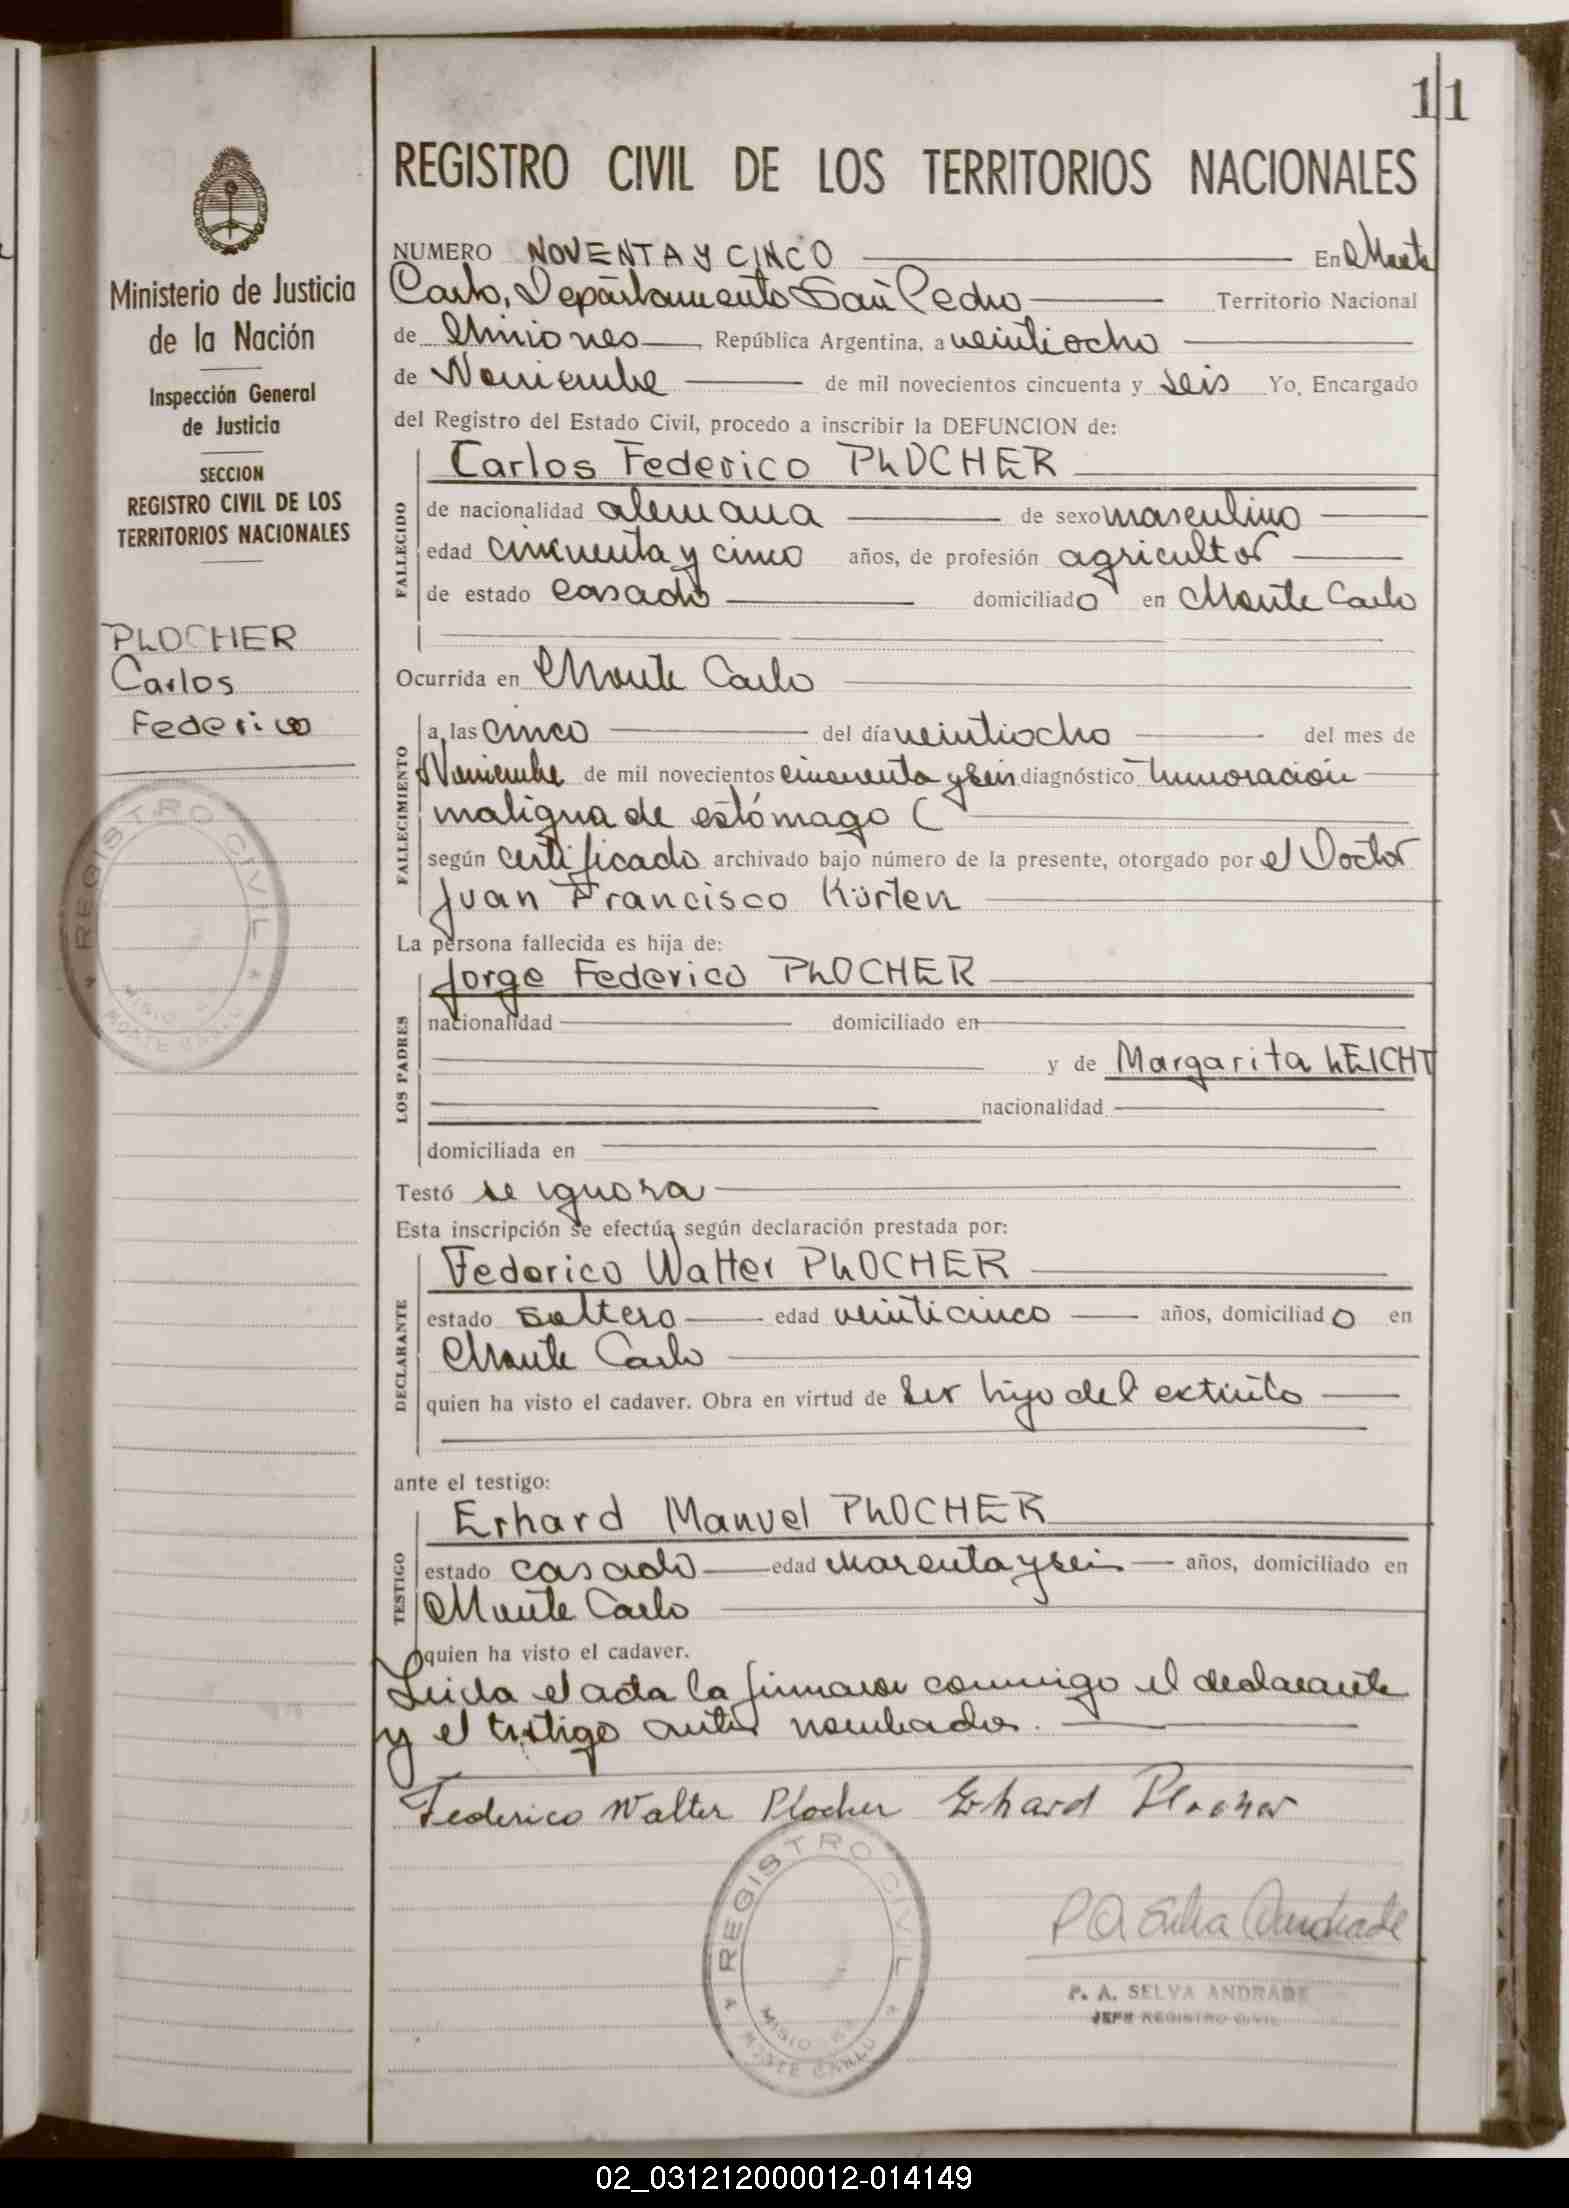 11
REGISTRO CIVIL DE LOS TERRITORIOS NACIONALES
NUMERO NOVENTA Y CINCO En Monte
Carlo, Departamento San Pedro Territorio Nacional
de Misiones República Argentina, a veintiocho
de Noviembre de mil novecientos cincuenta y seis Yo, Encargado
del Registro del Estado Civil, procedo a inscribir la DEFUNCION de:
FALLECIDO
Carlos Federico PLOCHER
de nacionalidad alemana de sexo masculino
edad cincuenta y cinco años, de profesión agricultor
de estado casado domiciliado en Monte Carlo
Ocurrida en Monte Carlo
FALLECIMIENTO
a las cinco del día veintiocho del mes de
Noviembre de mil novecientos cincuenta y seis diagnóstico tumoración
maligna de estómago (
según certificado archivado bajo número de la presente, otorgado por el Doctor
Juan Francisco Kürten
La persona fallecida es hija de:
LOS PADRES
Jorge Federico PLOCHER
nacionalidad domiciliado en
y de Margarita LEICHT
nacionalidad
domiciliada en
Testó se ignora
Esta inscripción se efectúa según declaración prestada por:
DECLARANTE
Federico Walter PLOCHER
estado soltero edad veinticinco años, domiciliado en
Monte Carlo
quien ha visto el cadaver. Obra en virtud de ser hijo del extinto
ante el testigo:
TESTIGO
Erhard Manuel PLOCHER
estado casado edad cuarenta y seis años, domiciliado en
Monte Carlo
quien ha visto el cadaver.
Leida el acta la firmaron conmigo el declarante
y el testigo antes nombados.
Federico Walter Plocher Erhard Plocher
REGISTRO CIVIL
MISIONES
MONTE CARLO
P A Selva Andrade
P. A. SELVA ANDRADE
JEFE REGISTRO CIVIL
Ministerio de Justicia
de la Nación
Inspección General
de Justicia
SECCION
REGISTRO CIVIL DE LOS
TERRITORIOS NACIONALES
PLOCHER
Carlos
Federico
REGISTRO CIVIL
MISIONES
MONTE CARLO
02_031212000012-014149